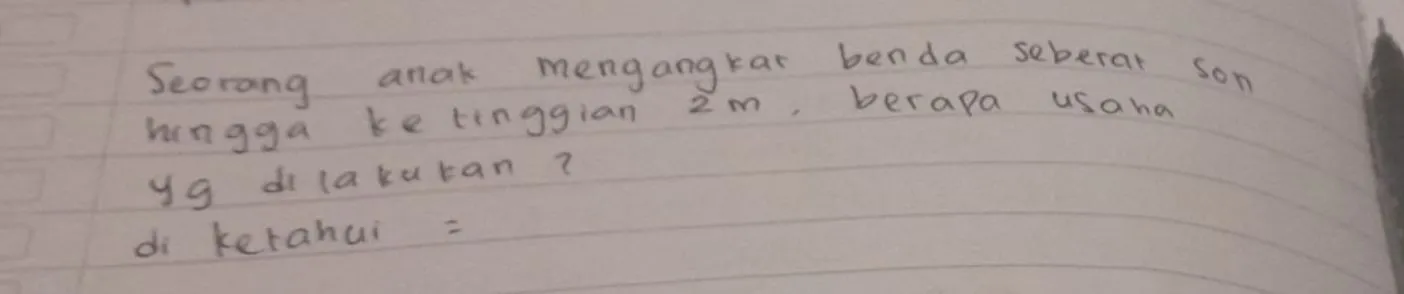 Seorang anak mengangkat benda seberat 50N
hingga ketinggian 2 m, berapa usaha
yg dilakukan?
di ketahui =